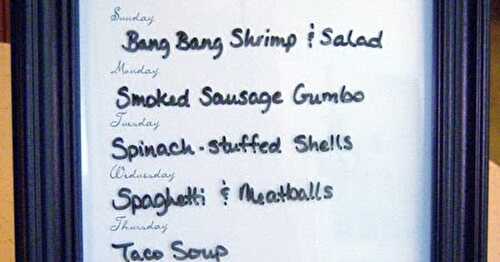 Sunday
Bang Bang Shrimp & Salad
Monday
Smoked Sausage Gumbo
Tuesday
Spinach-stuffed Shells
Wednesday
Spaghetti & Meatballs
Thursday
Taco Soup